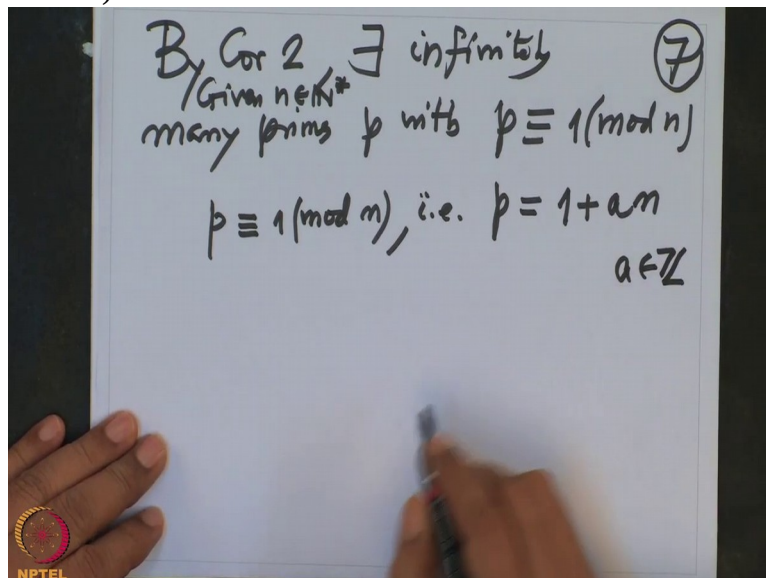 By Cor 2, ∃ infinitely
⑦
/Given n∈ℕ*
many prims p with p ≡ 1(mod n)
p ≡ 1(mod n), i.e. p = 1+an
a∈ℤ
NPTEL